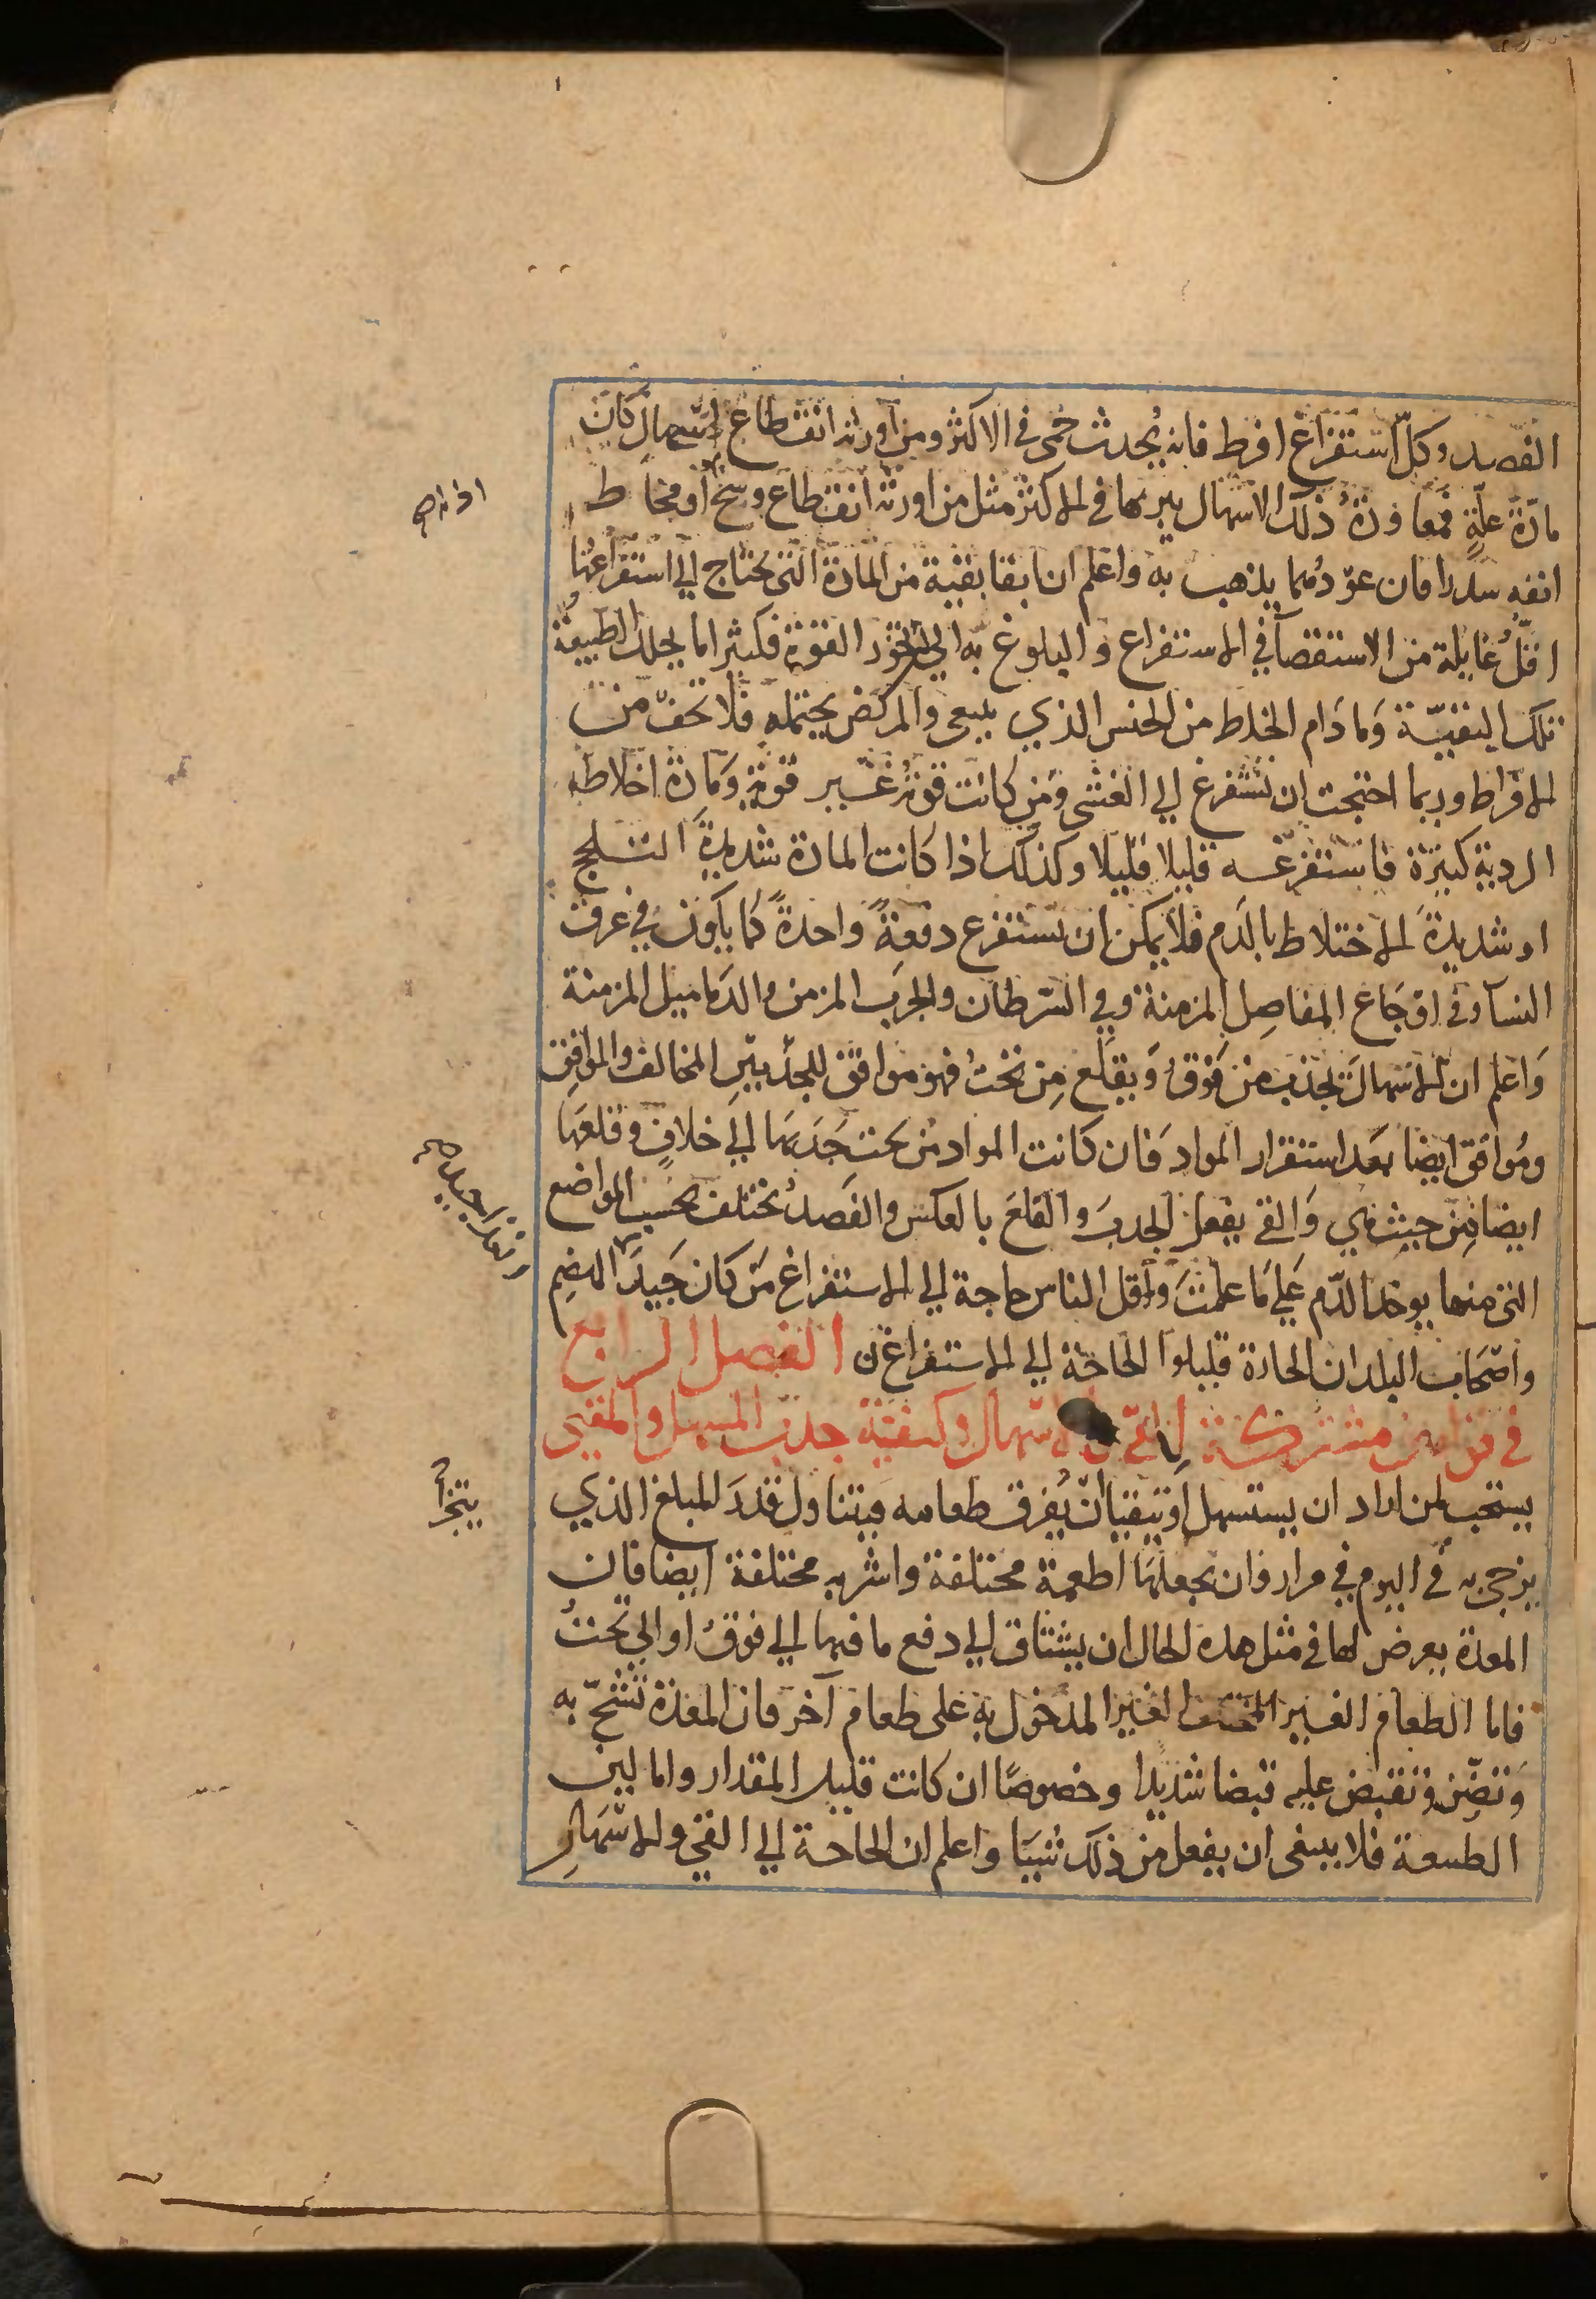 الفصد وكلّ استفراغ افرط فانه يُحدث حُمى في الاكثر ومن اورثه انقطاع اسهال كان
مادّة علّةٍ فمعاودةُ ذلك الاسهال يبريها في الاكثر مثل من اورثه انقطاع وسخ او مخاط
انفه سدرا فان عوّدهما يذهب به واعلم ان ابقا بقيّة من المادة التي يحتاج الي استفراغها
اقلُّ غايلة من الاستقصآ في الاستفراغ والبلوغ به الي القوّة فكثيرا ما يحلل الطبيعة
تلك البقيّة وما دام الخلاط من الجنس الذي ينبغي والمريض يحتمله فلا تخف من
الافراط وربما احتجت ان تستفرغ الي الغشي ومن كانت قوته غير قوية ومادة اخلاطه
الردية كثيرة فاستفرغه قليلا قليلا وكذلك اذا كانت المادة شديدةَ التلحج
او شديدةَ الاختلاط بالدم فلا يمكن ان تستفرغ دفعةً واحدةً كما يكون في عرق
النسآ وفي اوجاع المفاصل المزمنة وفي السرطان والجرب المزمن والدماميل المزمنة
وَاعلم ان الاسهال يجذب من فوقُ وَيقلع مِن تحتُ فهو موافق للجذبين المخالف والموافق
ومُوافق ايضا بعد استقرار المواد فان كانت المواد من تحت جذبها الي خلافٍ وقلعها
ايضا مِن حيث هي وَالقي يفعل الجذبَ والقلعَ بالعكس والفَصدُ يختلف بحسب المواضع
التي منها يوخذ الدّم عَلي مَا علمتَ واقل الناس حاجة الي الاستفراغ مَن كان جَيدَ الهضم
واصحاب البلدان الحارة قليلوا الحاجة الي الاستفراغ الفصل الرابع
في قوانين مشتركة للقي والاسهال وكيفية جذب المسهل والمقيي
يستحب لمن اراد ان يستسهل او يتقيا ان يُفرق طعامه فيتناول قدرَ المبلغ الذي
يزجي به في اليوم في مرار وان يجعلها اطعمة مختلفة واشربه مختلفة ايضا فان
المعدة يعرض لها في مثل هذه الحال ان يشتاق الي دفع ما فيها الي فوقُ او الي تحتُ
فاما الطعام الغير المختلف الغير المدخول به على طعام آخر فان المعدة تشحّ به
وَتضنّ وتقبض عليه قبضا شديدا وخصوصًا ان كانت قليل المقدار واما لين
الطبيعة فلا ينبغي ان يفعل من ذلك شيئا واعلم ان الحاجة الي القي والاسهال